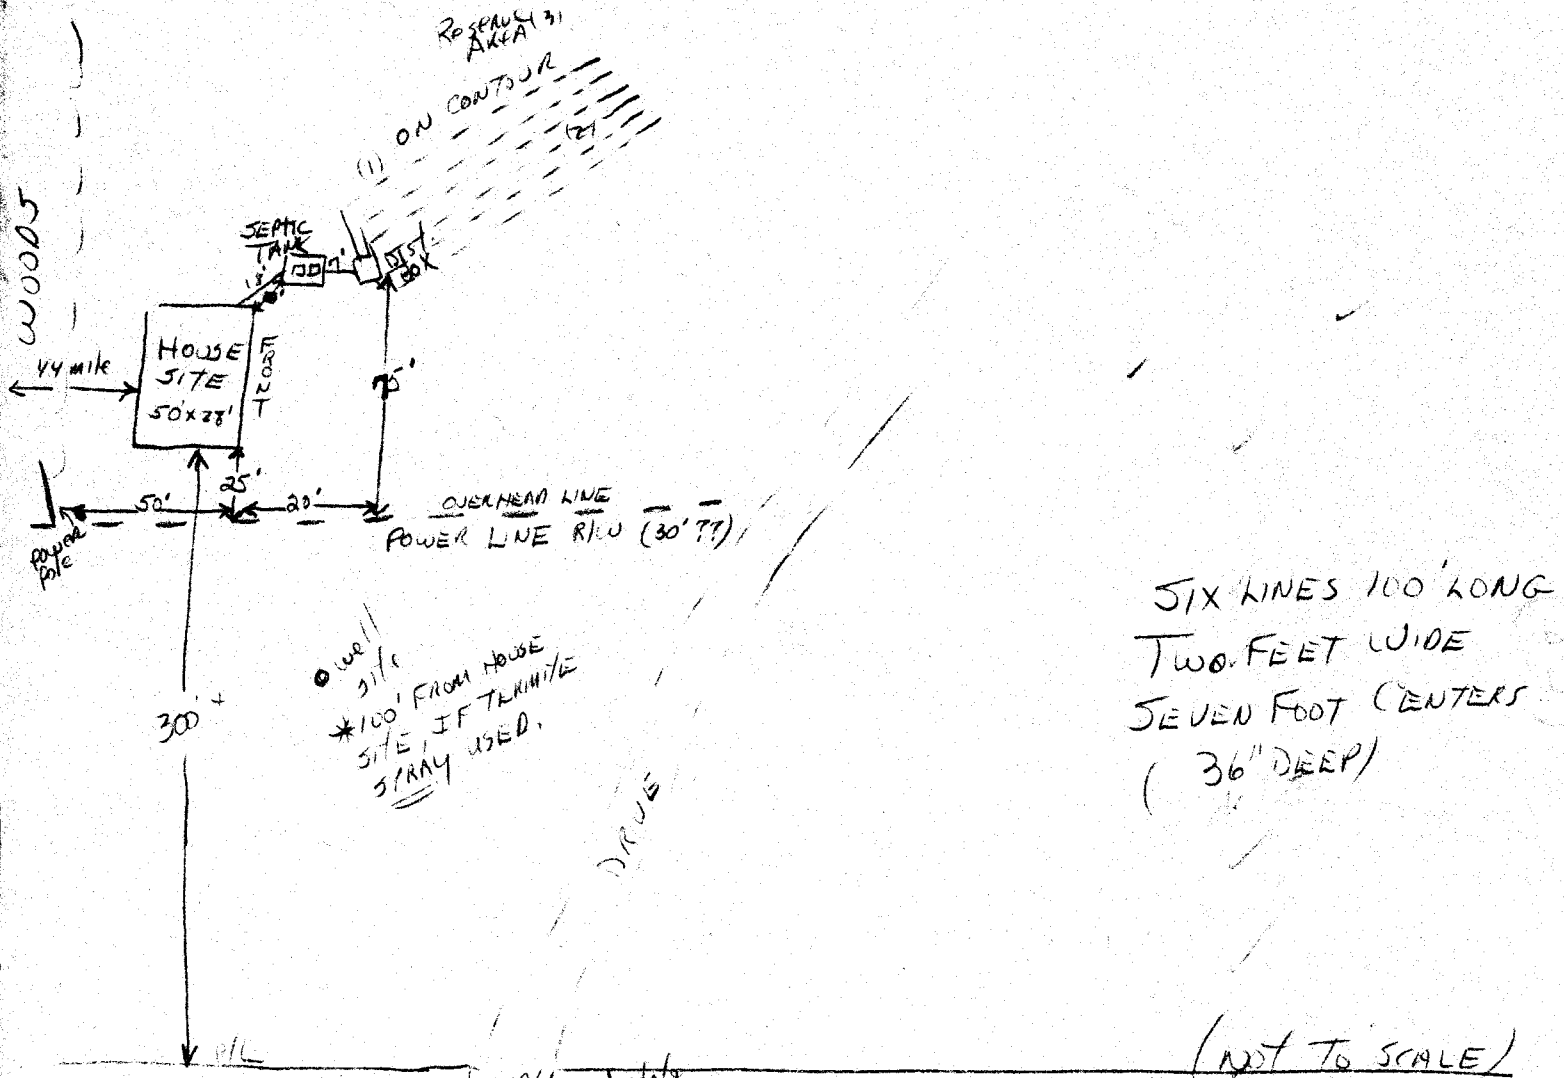 RESERVE
AREA
ON CONTOUR
(1)
(2)
WOODS
SEPTIC
TANK
7'
DIST
BOX
HOUSE
SITE
FRONT
75'
25'
50'
20'
OVERHEAD LINE
POWER LINE R/W (30' ??)
POWER
POLE
WELL
SITE
*100' FROM HOUSE
SITE, IF TERMITE
SPRAY USED.
300' +
DRIVE
SIX LINES 100' LONG
TWO FEET WIDE
SEVEN FOOT CENTERS
(36" DEEP)
P/L
(NOT TO SCALE)